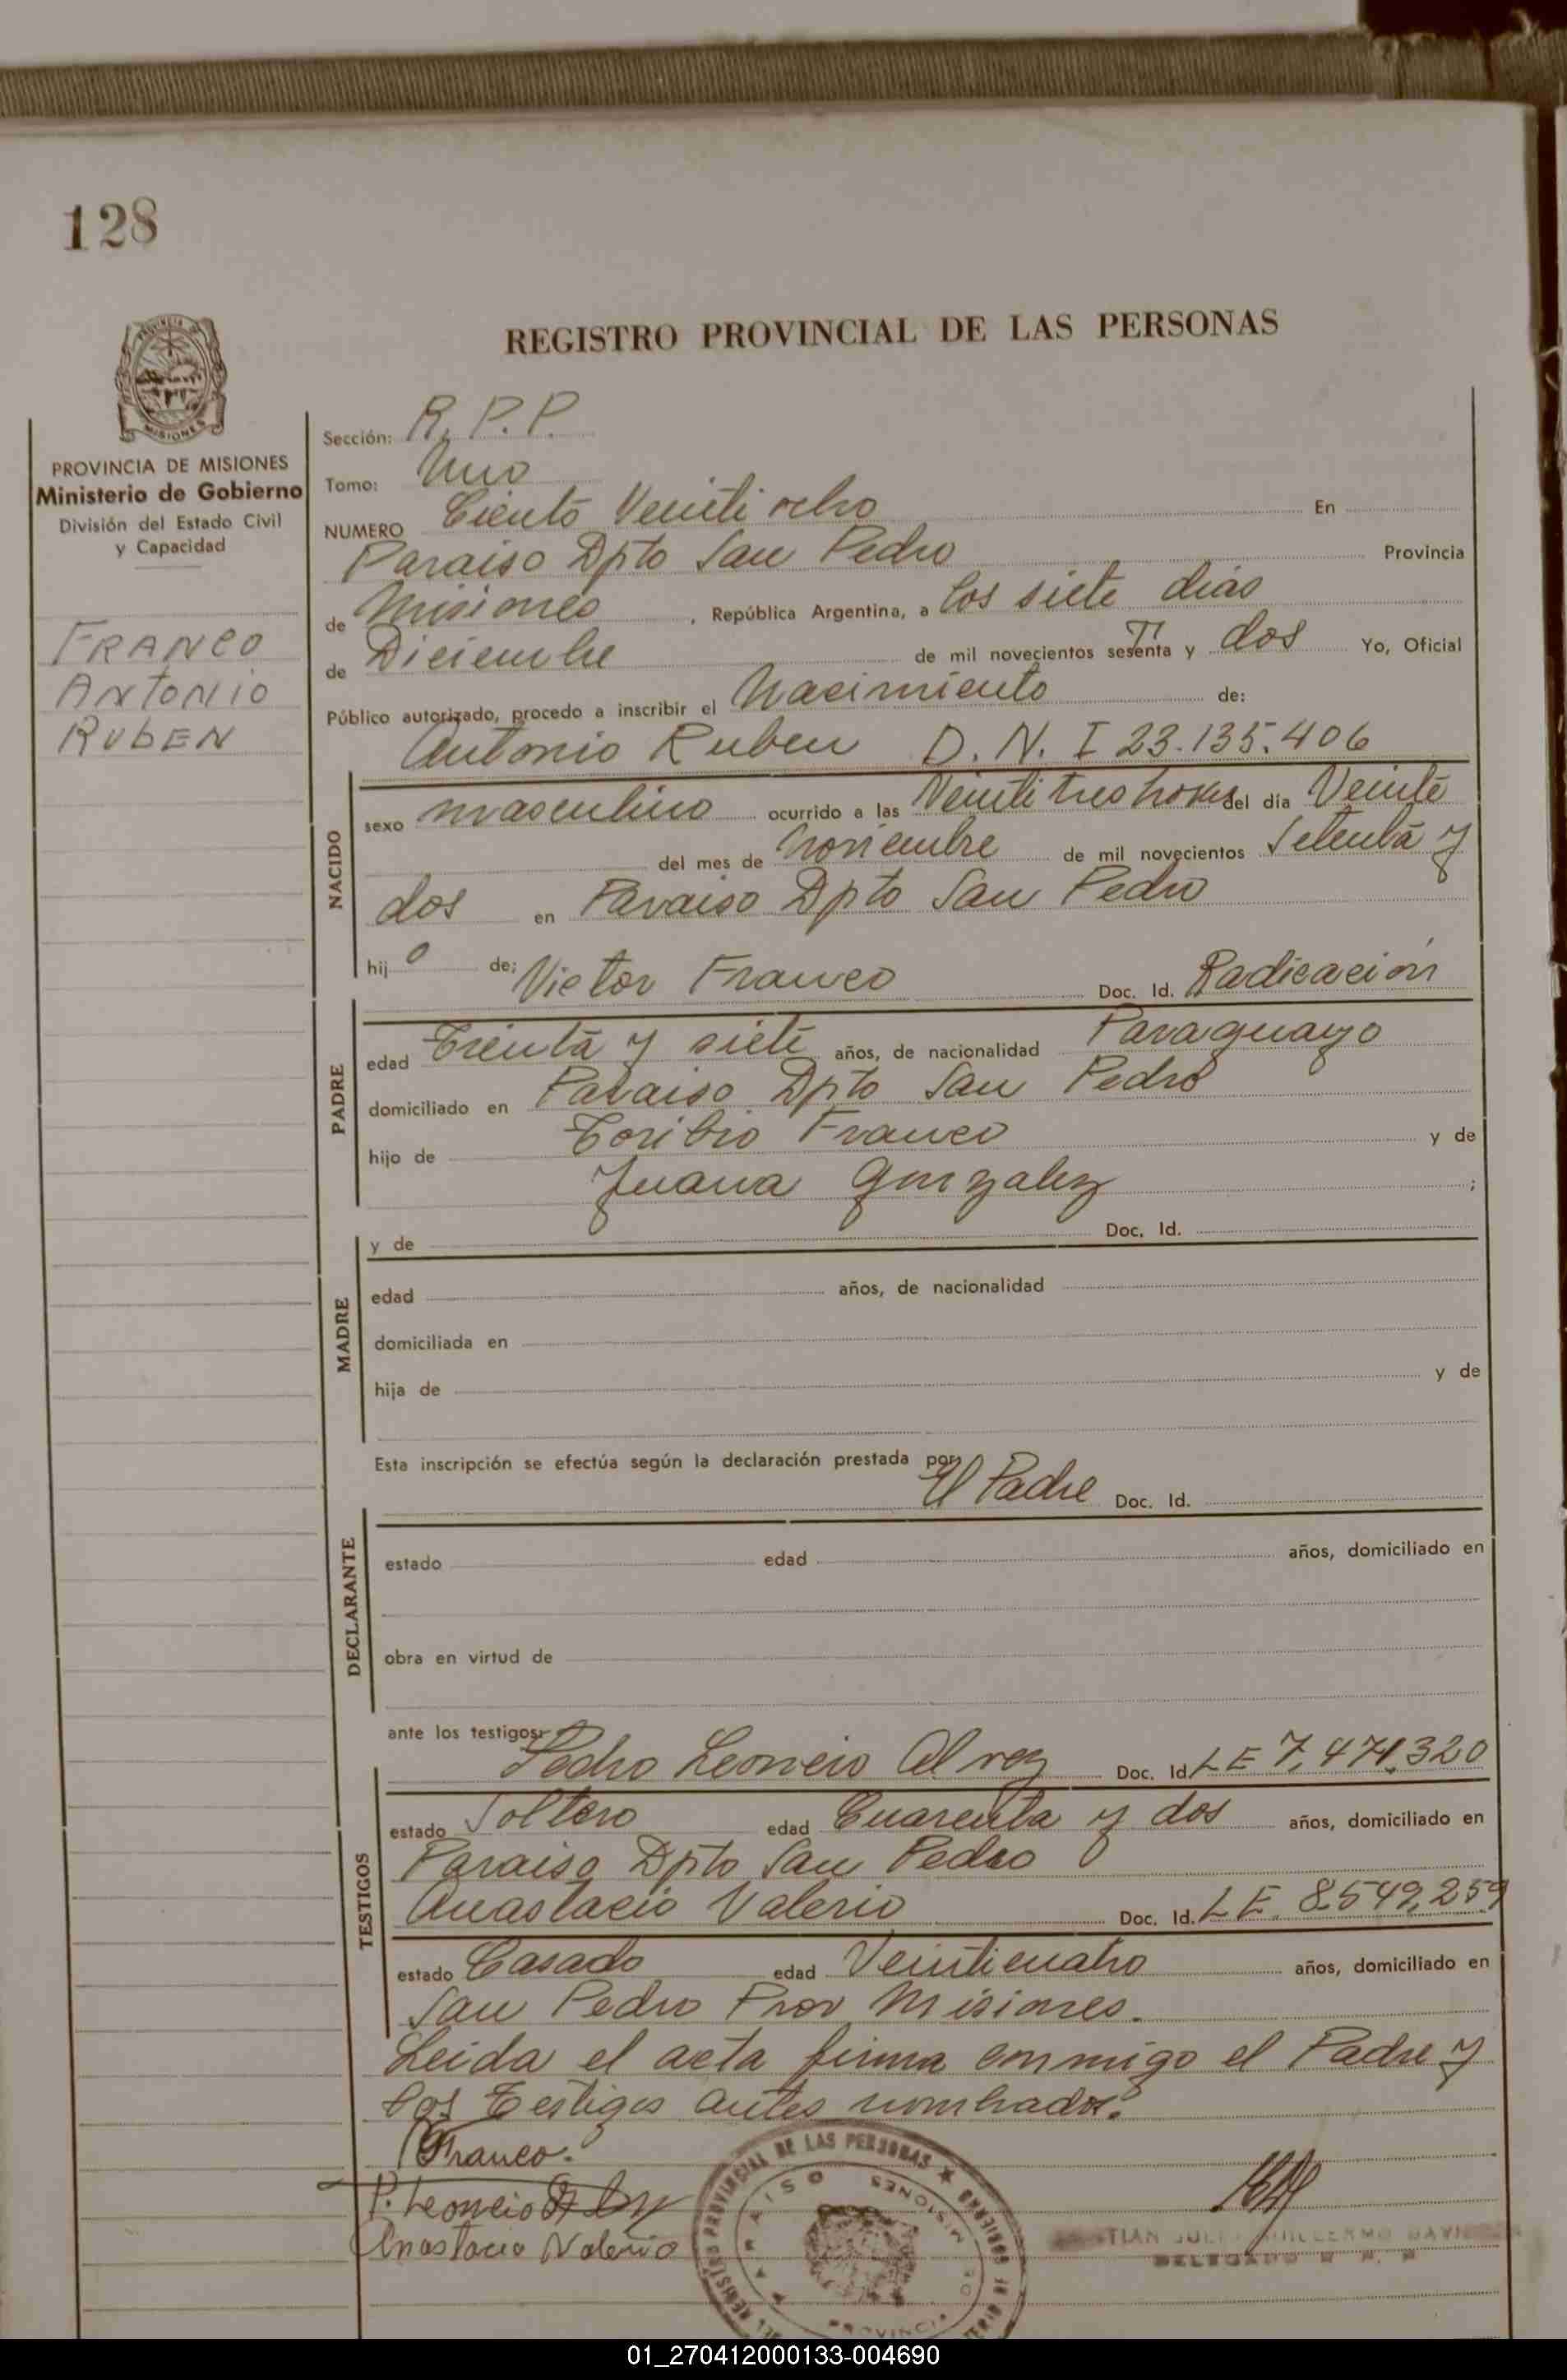 128
REGISTRO PROVINCIAL DE LAS PERSONAS
PROVINCIA DE MISIONES
Ministerio de Gobierno
División del Estado Civil
y Capacidad
FRANCO
ANTONIO
RUBEN
Sección: R. P. P.
Tomo: Uno
NUMERO Ciento Veinti ocho En
Paraiso Dpto San Pedro Provincia
de Misiones, República Argentina, a los siete dias
de Diciembre de mil novecientos setenta y dos Yo, Oficial
Público autorizado, procedo a inscribir el Nacimiento de:
Antonio Ruben D. N. I 23.135.406
NACIDO
sexo masculino ocurrido a las Veinti tres horas del día Veinte
del mes de Noviembre de mil novecientos Setenta y
dos en Paraiso Dpto San Pedro
hijo de: Victor Franco Doc. Id. Radicación
PADRE
edad Treinta y siete años, de nacionalidad Paraguayo
domiciliado en Paraiso Dpto San Pedro
hijo de Toribio Franco y de
Juana Gonzalez ;
MADRE
y de Doc. Id.
edad años, de nacionalidad
domiciliada en
hija de y de
Esta inscripción se efectúa según la declaración prestada por
El Padre Doc. Id.
DECLARANTE
estado edad años, domiciliado en
obra en virtud de
ante los testigos:
Pedro Leoncio Alvez Doc. Id. LE 7,471,320
TESTIGOS
estado Soltero edad Cuarenta y dos años, domiciliado en
Paraiso Dpto San Pedro
Anastacio Valerio Doc. Id. LE. 8.549,259
estado Casado edad Veinticuatro años, domiciliado en
San Pedro Prov Misiones.
Leida el acta firma conmigo el Padre y
los Testigos antes nombrados.
Franco.
P. Leoncio
Anastacio Valerio
REGISTRO PROVINCIAL DE LAS PERSONAS
PARAISO
MISIONES
PROVINCIA
GUILLERMO
DELEGADO
01_270412000133-004690